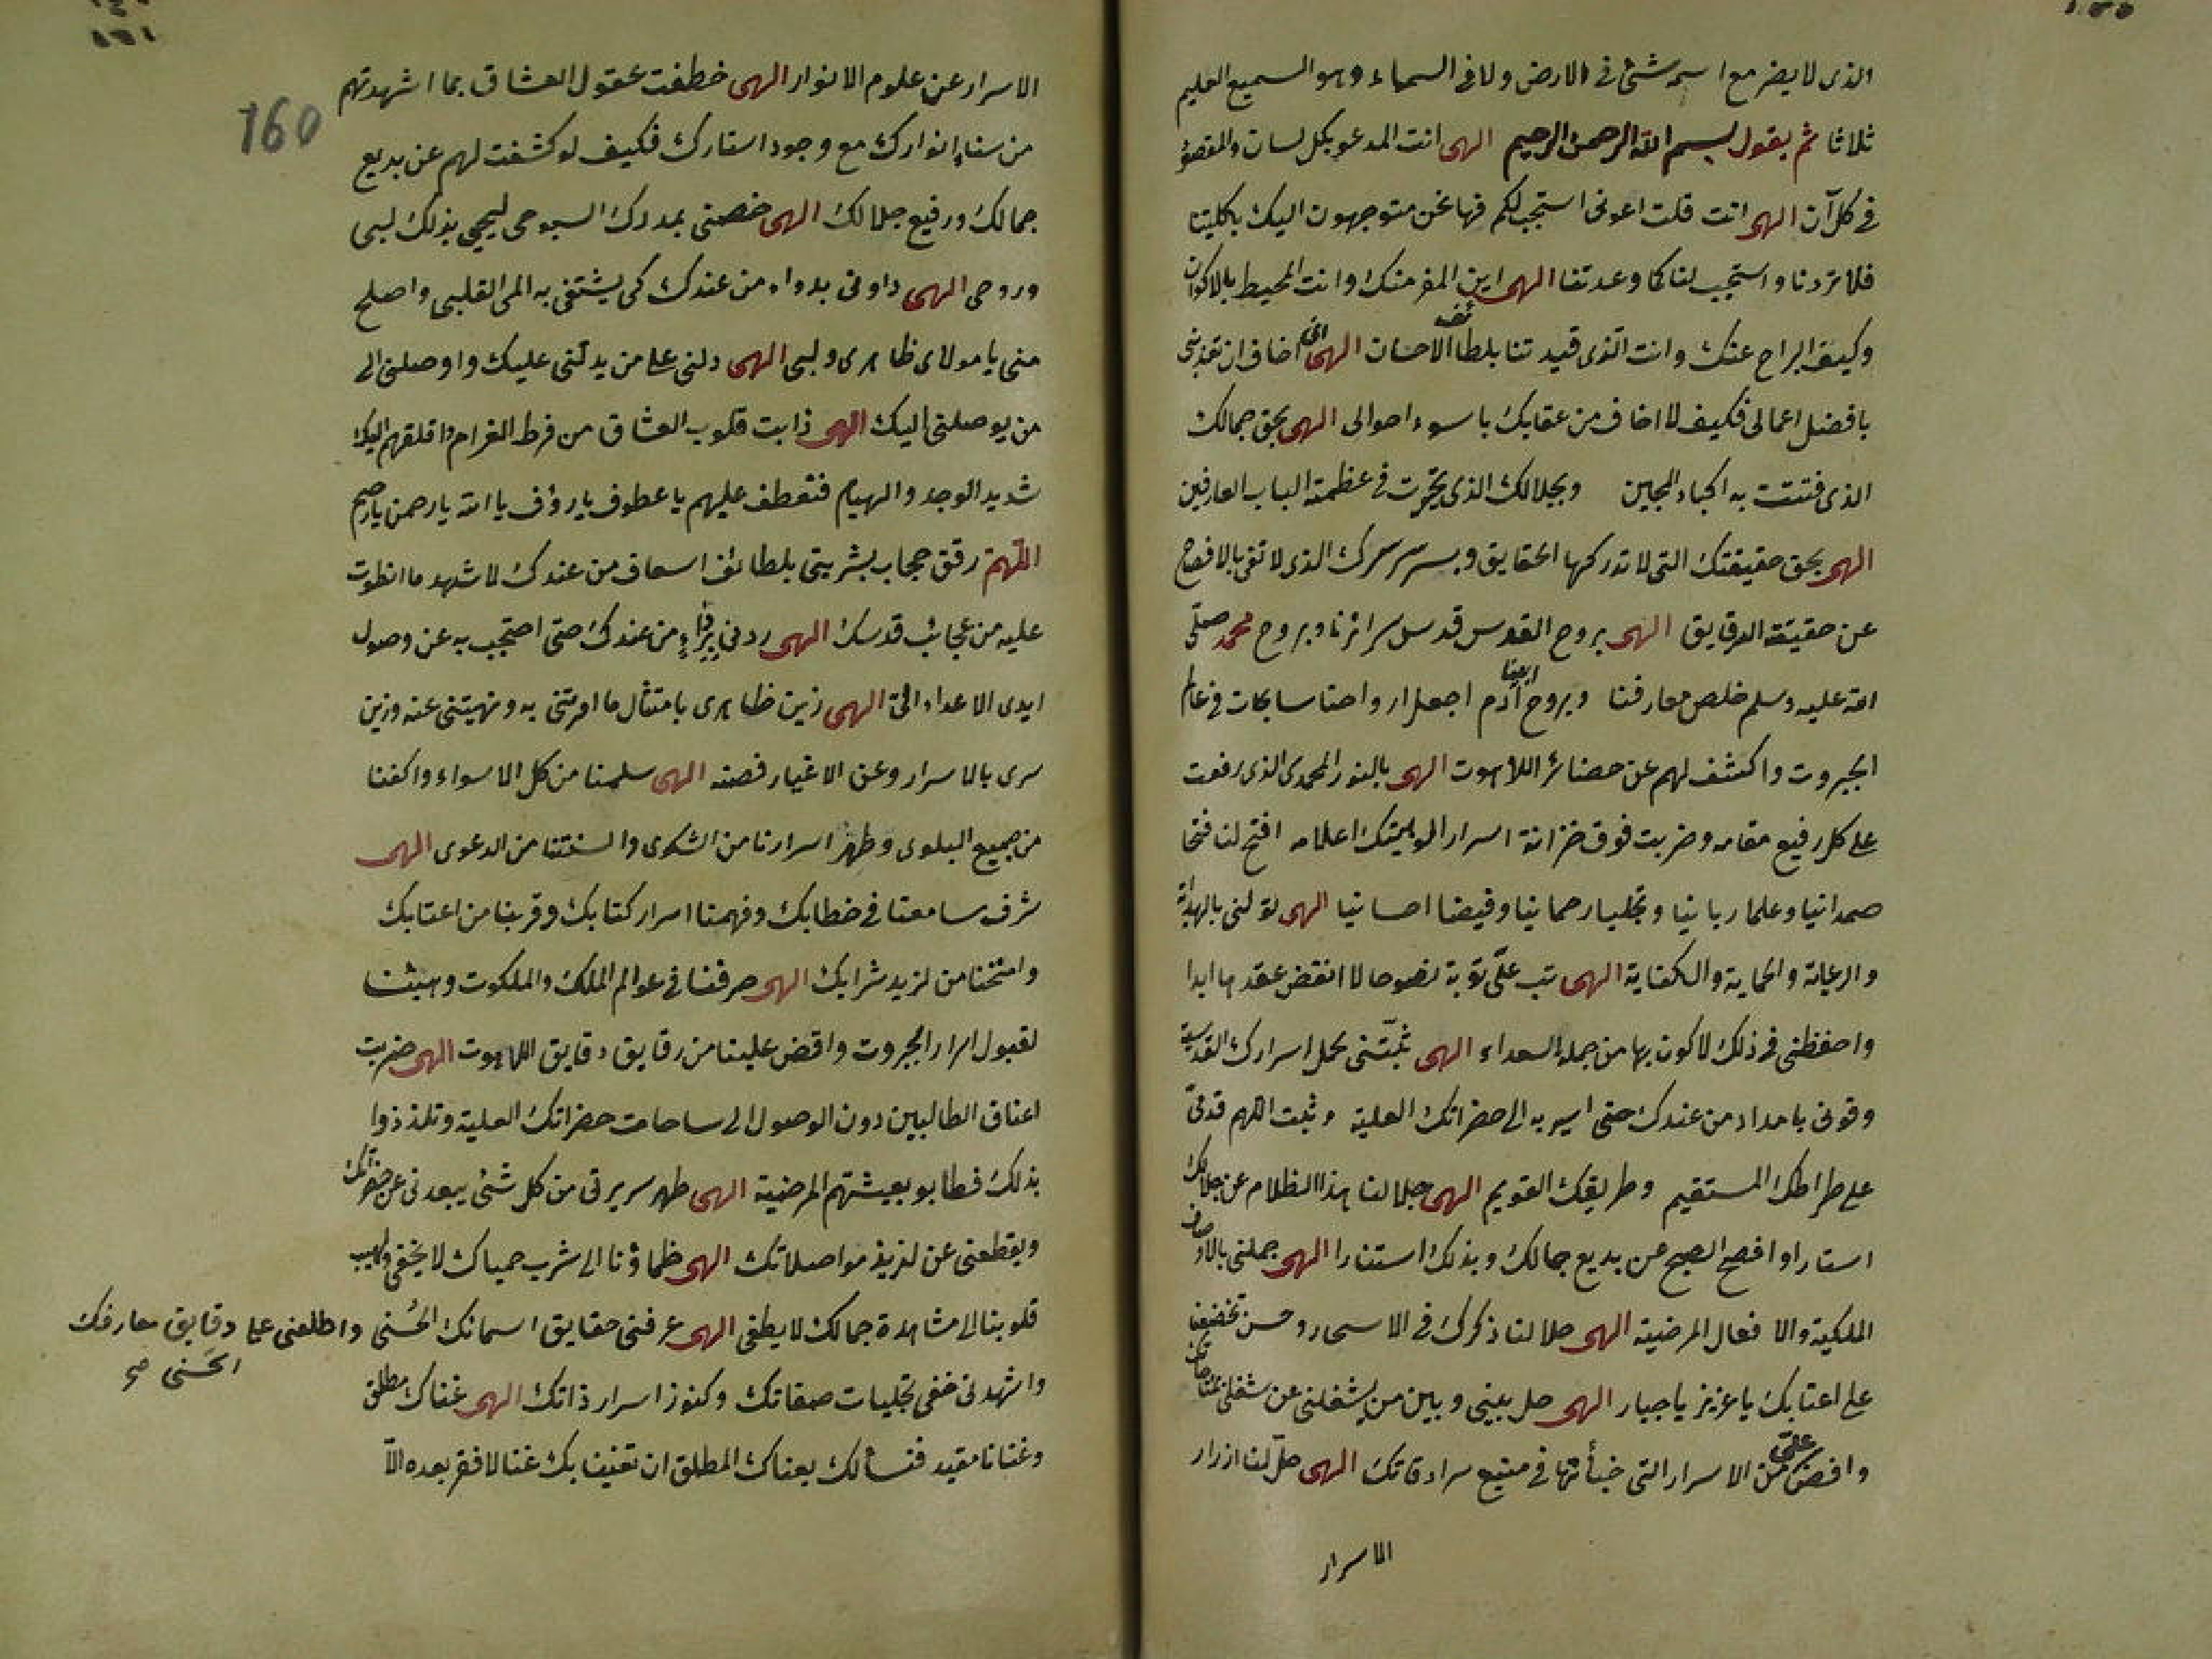 الذى لا يضر مع اسمه شئ فى الارض ولا فى السماء وهو السميع العليم
ثلاثا ثم يقول بسم الله الرحمن الرحيم الهى انت المدعو بكل لسان والمقصود
فى كل آن الهى انت قلت ادعونى استجب لكم فها نحن متوجهون اليك بكليتنا
فلا تردنا واستجب لنا كما وعدتنا الهى اين المفر منك وانت المحيط بالاكوان
وكيف البراح عنك وانت الذى قيدتنا بلطائف الاحسان الهى انى اخاف ان تعذبنى
بافضل اعمالى فكيف لا اخاف من عقابك باسوء احوالى الهى بحق جمالك
الذى فتتت به اكباد المحبين وبجلالك الذى تحيرت فى عظمته الباب العارفين
الهى بحق حقيقتك التى لا تدركها الحقايق وبسر سرك الذى لا تفى بالافصاح
عن حقيقته الدقايق الهى بروح القدس قدس سرائرنا وبروح محمد صلى
الله عليه وسلم خلص معارفنا وبروح ابينا آدم اجعل ارواحنا سابحات فى عالم
الجبروت واكشف لهم عن حضائر اللاهوت الهى بالنور المحمدى الذى رفعت
على كل رفيع مقامه وضربت فوق خزانة اسرار الوهيتك اعلامه افتح لنا فتحا
صمدانيا وعلما ربانيا وتجليا رحمانيا وفيضا احسانيا الهى تولنى بالهداية
والرعاية والحماية والكفاية الهى تب على توبة نصوحا لا انقض عقدها ابدا
واحفظنى فى ذلك لاكون بها من جملة السعداء الهى ثبتنى لحمل اسرارك القدسية
وقونى بامداد من عندك حتى اسير به الى حضراتك العلية وثبت اللهم قدمى
على طراطك المستقيم وطريقك القويم الهى جلا لنا هذا الظلام عن جلالك
استارا وافصح الصبح عن بديع جمالك وبذلك استنارا الهى جملنى بالاوصاف
الملكية والافعال المرضية الهى حلا لنا ذكرك فى الاسحار وحسن تخضعنا
على اعتابك يا عزيز يا جبار الهى حل بينى وبين من يشغلنى عن شغلى بمناجاتك
وافض على من الاسرار التى خبأتها فى منيع سرادقاتك الهى حل لنا ازرار
الاسرار
160
الاسرار عن علوم الانوار الهى خطفت عقول العشاق بما اشهدتهم
من سناء انوارك مع وجود استارك فكيف لو كشفت لهم عن بديع
جمالك ورفيع جلالك الهى خصنى بمددك السبوحى ليحيى بذلك لبى
وروحى الهى داونى بدواء من عندك كى يشتفى به المى القلبى واصلح
منى يا مولاى ظاهرى ولبى الهى دلنى على من يدلنى عليك واوصلنى الى
من يوصلنى اليك الهى ذابت قلوب العشاق من فرط الغرام واقلقهم اليك
شديد الوجد والهيام فتعطف عليهم يا عطوف يا رؤف يا الله يا رحمن يا رحيم
اللهم رقق حجاب بشريتى بلطائف اسعاف من عندك لاشهد ما انطوت
عليه من عجائب قدسك الهى ردنى برداء من عندك حتى احتجب به عن وصول
ايدى الاعداء الى الهى زين ظاهرى بامتثال ما امرتنى به ونهيتنى عنه وزين
سرى بالاسرار وعن الاغيار فصنه الهى سلمنا من كل الاسواء واكفنا
من جميع البلوى وطهر اسرارنا من الشكوى والسنتنا من الدعوى الهى
شرف مسامعنا فى خطابك وفهمنا اسرار كتابك وقربنا من اعتابك
وامنحنا من لزيد شرابك الهى صرفنا فى عوالم الملك والملكوت وهيئنا
لقبول اسرار الجبروت وافض علينا من رقايق دقايق اللاهوت الهى ضربت
اعناق الطالبين دون الوصول الى ساحات حضراتك العلية وتلذذوا
بذلك فطابوا بعيشتهم المرضية الهى طهر سريرتى من كل شئ يبعدنى عن حضراتك
ويقطعنى عن لذيذ مواصلاتك الهى ظماؤنا الى شرب حمياك لا يخفى ولهيب
قلوبنا الى مشاهدة جمالك لا يطفى الهى عرفنى حقايق اسمائك الحسنى واطلعنى على دقايق معارفك
الحسنى صح
واشهدنى خفى تجليات صفاتك وكنوز اسرار ذاتك الهى غناك مطلق
وغنانا مقيد فنسألك بغناك المطلق ان تغنينا بك غنا لا فقر بعده الا